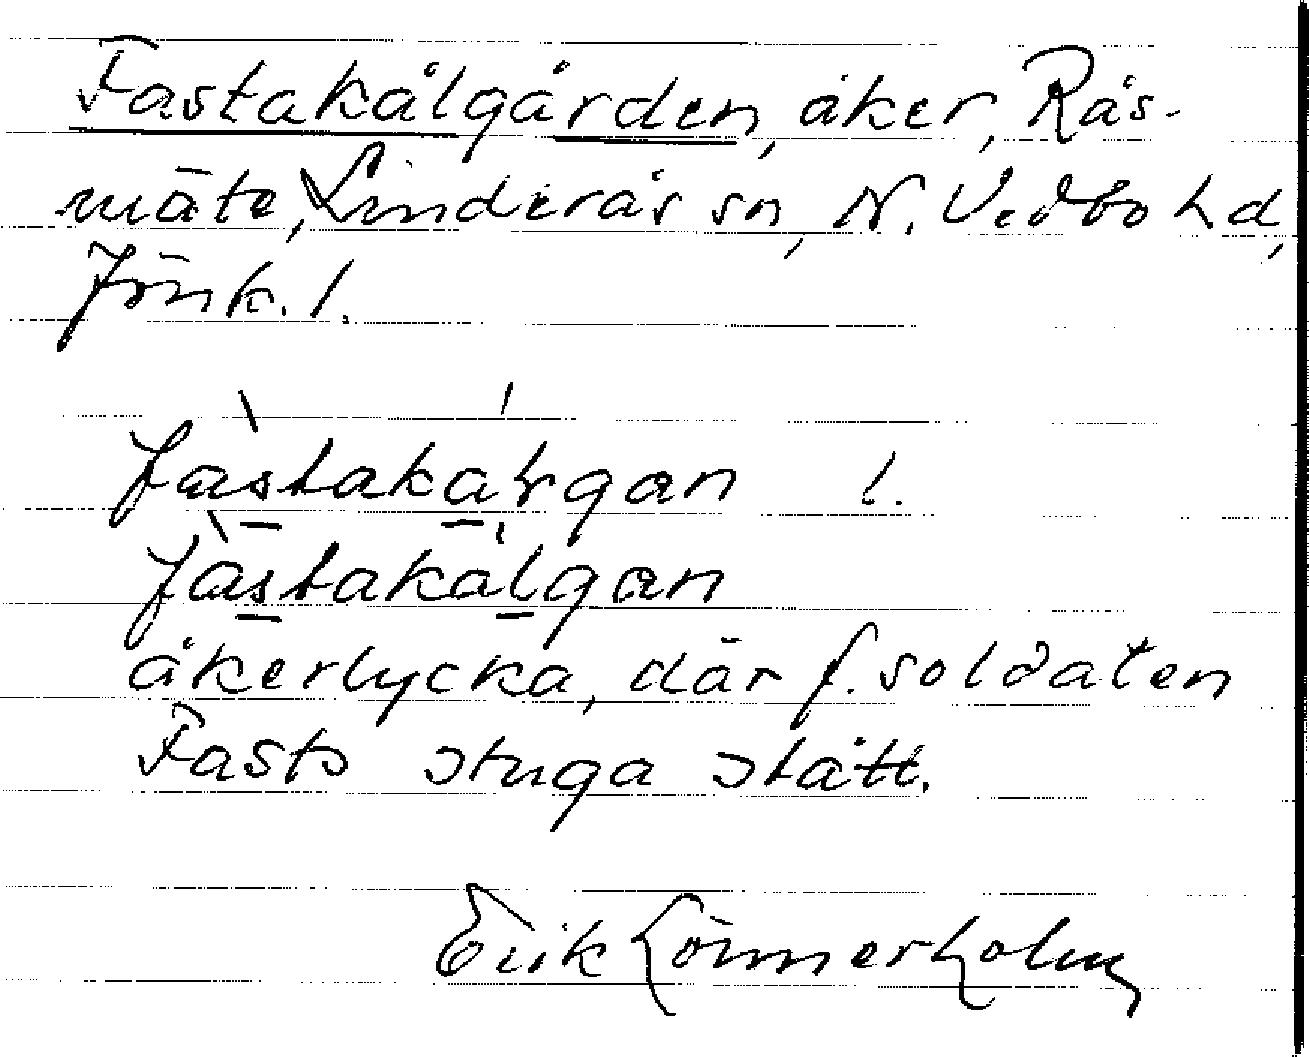 Fastakålgården, åker, Rås-
mäte, Linderås sn, N. Vedbo hd,
Jönk. l.
fàstakáłgan l.
fàstakálgan
åkerlycka, där f. soldaten
Fasts stuga stått.
Erik Lönnerholm